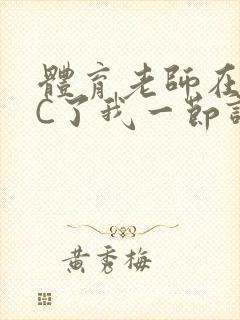 體育老師在
C了我一節
黃秀梅